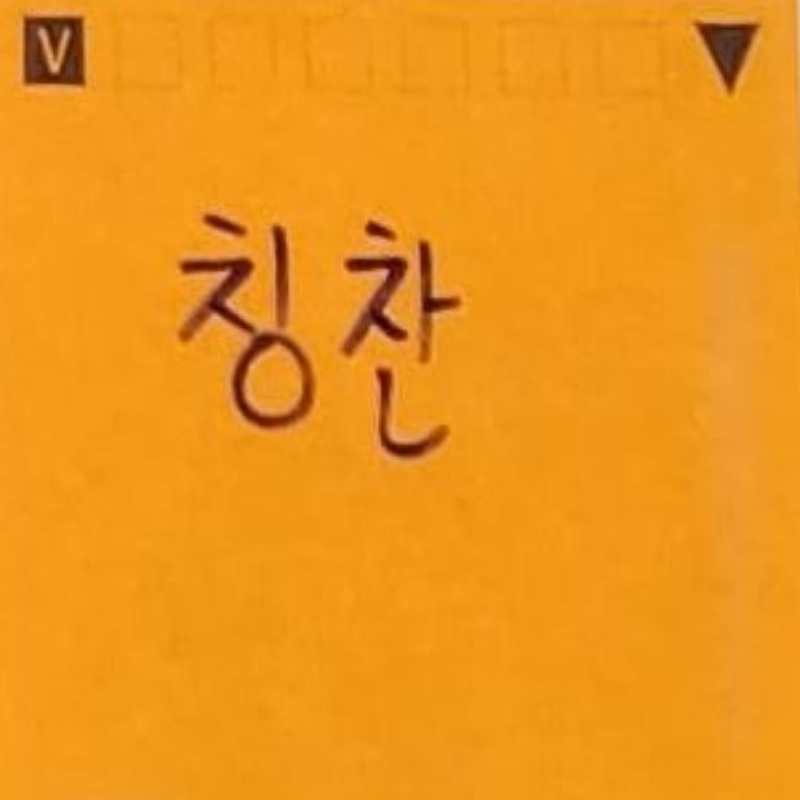 V
칭찬